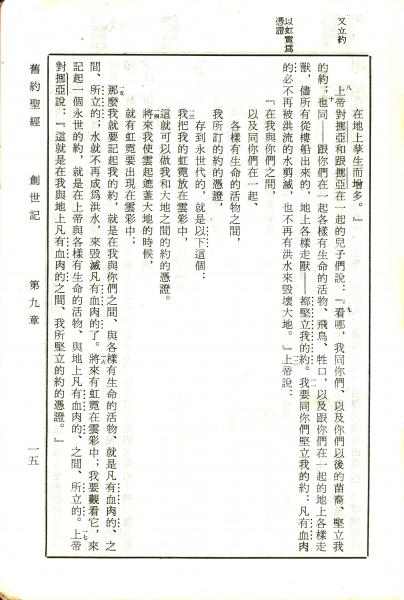 又立約
以虹霓爲
憑證
在地上孳生而增多。』
八
上帝對挪亞和跟挪亞在一起的兒子們說：『看哪，我同你們、以及你們以後的苗裔、堅立我
九
的約；也同──跟你們在一起各樣有生命的活物、飛鳥、牲口，以及跟你們在一起的地上各樣走
十
獸，儘所有從樓船出來的，地上各樣走獸──都堅立我的約。我要同你們堅立我的約：凡有血肉
一一
的必不再被洪流的水剪滅，也不再有洪水來毀壞大地。』上帝說：
一二
『在我與你們之間，
以及同你們在一起、
各樣有生命的活物之間，
我所訂的約的憑證，
存到永世代的，就是以下這個：
一三
我把我的虹霓放在雲彩中，
這就可以做我和大地之間的約的憑證。
一四
將來我使雲起遮蓋大地的時候，
就有虹霓要出現在雲彩中；
一五
那麼我就要記起我的約，就是在我與你們之間、與各樣有生命的活物、就是凡有血肉的、之
間、所立的；水就不再成爲洪水，來毀滅凡有血肉的了。將來有虹霓在雲彩中；我要觀看它，來
一六
記起一個永世的約，就是在上帝與各樣有生命的活物、與地上凡有血肉的、之間、所立的。上帝
一七
對挪亞說：『這就是在我與地上凡有血肉的之間、我所堅立的約的憑證。』
舊約聖經　創世記　第九章　一五